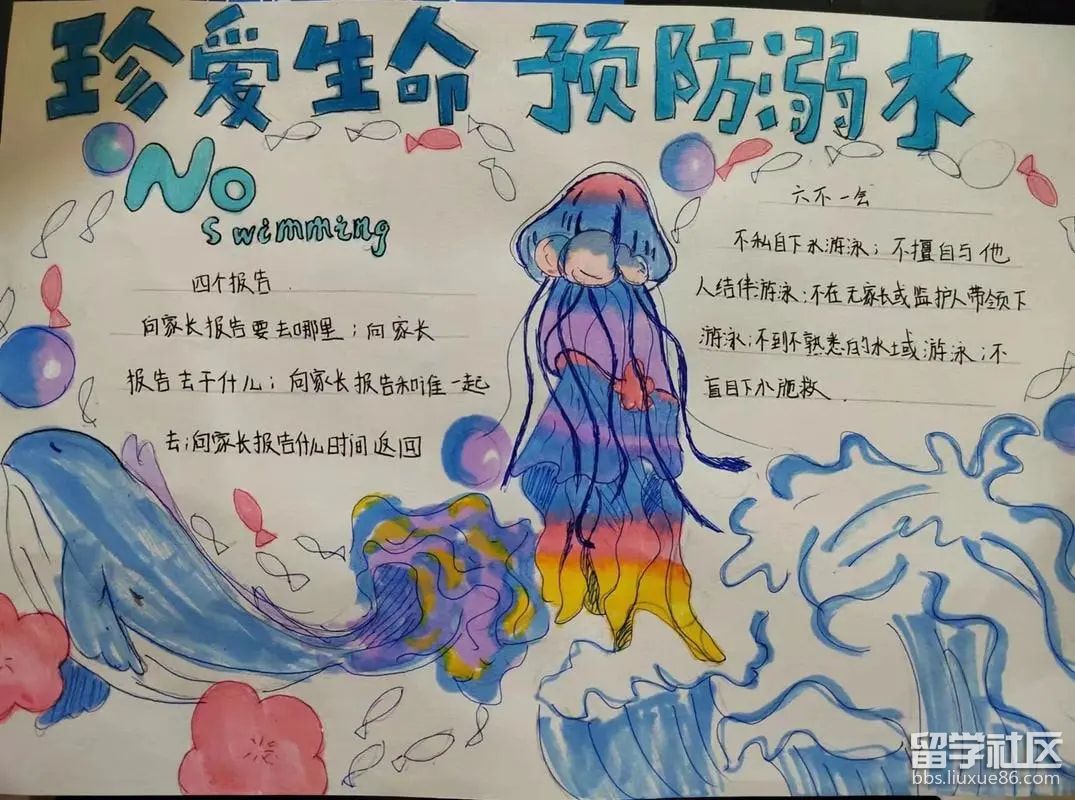 珍爱生命 预防溺水
No
Swimming
四个报告
向家长报告要去哪里；向家长
报告去干什么；向家长报告和谁一起
去；向家长报告什么时间返回
六不一会
不私自下水游泳；不擅自与他
人结伴游泳；不在无家长或监护人带领下
游泳；不到不熟悉的水域游泳；不
盲目下水施救
留学社区
bbs.liuxue86.com